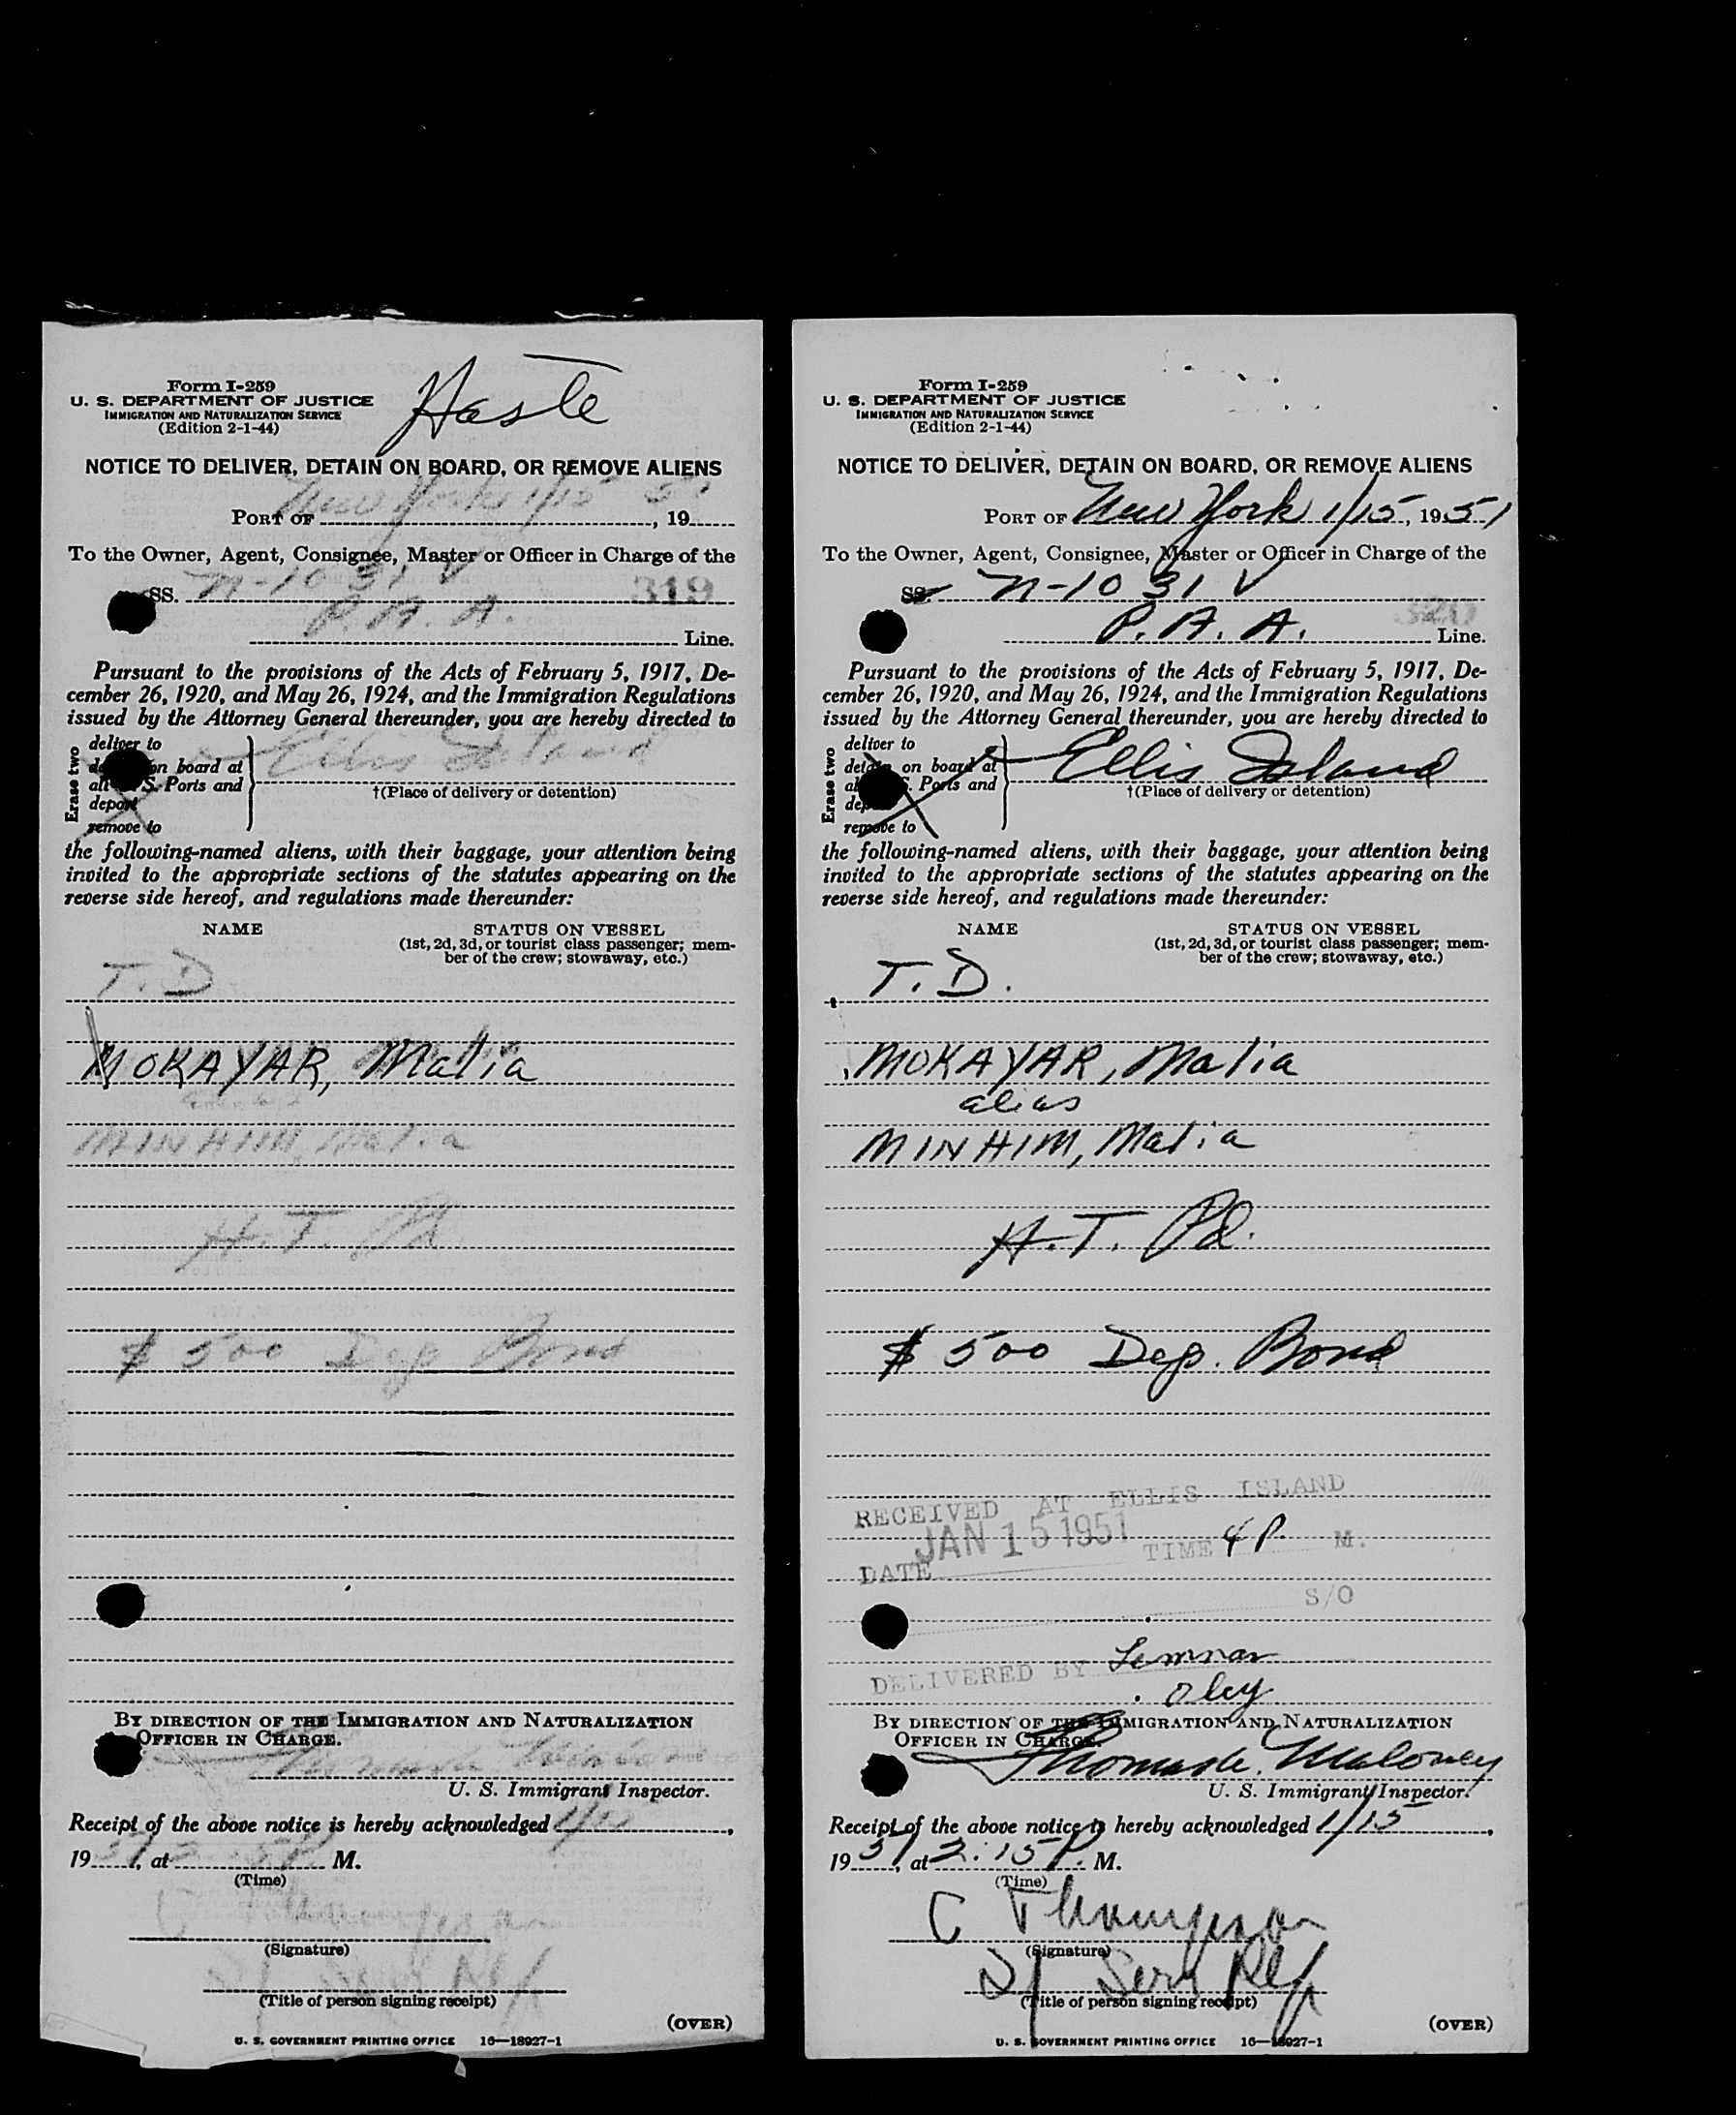 Form I-259
U. S. DEPARTMENT OF JUSTICE
IMMIGRATION AND NATURALIZATION SERVICE
(Edition 2-1-44)
NOTICE TO DELIVER, DETAIN ON BOARD, OR REMOVE ALIENS
PORT OF New York 1/15, 1951
To the Owner, Agent, Consignee, Master or Officer in Charge of the
SS. N-1031 V
319
P. A. A. Line.
Pursuant to the provisions of the Acts of February 5, 1917, De-
cember 26, 1920, and May 26, 1924, and the Immigration Regulations
issued by the Attorney General thereunder, you are hereby directed to
Erase two
deliver to
on board at
S. Ports and
depor
remove to
Ellis Island
†(Place of delivery or detention)
the following-named aliens, with their baggage, your attention being
invited to the appropriate sections of the statutes appearing on the
reverse side hereof, and regulations made thereunder:
NAME
STATUS ON VESSEL
(1st, 2d, 3d, or tourist class passenger; mem-
ber of the crew; stowaway, etc.)
T. D
MOKAYAR, Malia
MINHIM, Malia
H. T. Pd.
$ 500 Dep Bond
BY DIRECTION OF THE IMMIGRATION AND NATURALIZATION
OFFICER IN CHARGE.
U. S. Immigrant Inspector.
Receipt of the above notice is hereby acknowledged 1/15,
1951, at 2:15 P. M.
(Time)
C Thompson
(Signature)
Serv Rep
(Title of person signing receipt)
(OVER)
U. S. GOVERNMENT PRINTING OFFICE 16—18927-1
Form I-259
U. S. DEPARTMENT OF JUSTICE
IMMIGRATION AND NATURALIZATION SERVICE
(Edition 2-1-44)
NOTICE TO DELIVER, DETAIN ON BOARD, OR REMOVE ALIENS
PORT OF New York 1/15, 1951
To the Owner, Agent, Consignee, Master or Officer in Charge of the
SS. N-1031 V
320
P. A. A. Line.
Pursuant to the provisions of the Acts of February 5, 1917, De-
cember 26, 1920, and May 26, 1924, and the Immigration Regulations
issued by the Attorney General thereunder, you are hereby directed to
Erase two
deliver to
deta on board at
S. Ports and
dep
remove to
Ellis Island
†(Place of delivery or detention)
the following-named aliens, with their baggage, your attention being
invited to the appropriate sections of the statutes appearing on the
reverse side hereof, and regulations made thereunder:
NAME
STATUS ON VESSEL
(1st, 2d, 3d, or tourist class passenger; mem-
ber of the crew; stowaway, etc.)
T. D.
MOKAYAR, Malia
alias
MINHIM, Malia
H. T. Pd.
$ 500 Dep. Bond
RECEIVED AT ELLIS ISLAND
DATE JAN 15 1951 TIME 4 P. M.
S/O
DELIVERED BY
BY DIRECTION OF THE IMMIGRATION AND NATURALIZATION
OFFICER IN CHARGE.
Thomas Maloney
U. S. Immigrant Inspector.
Receipt of the above notice is hereby acknowledged 1/15,
1951, at 2:15 P. M.
(Time)
C Thompson
(Signature)
Serv Rep
(Title of person signing receipt)
(OVER)
U. S. GOVERNMENT PRINTING OFFICE 16—18927-1